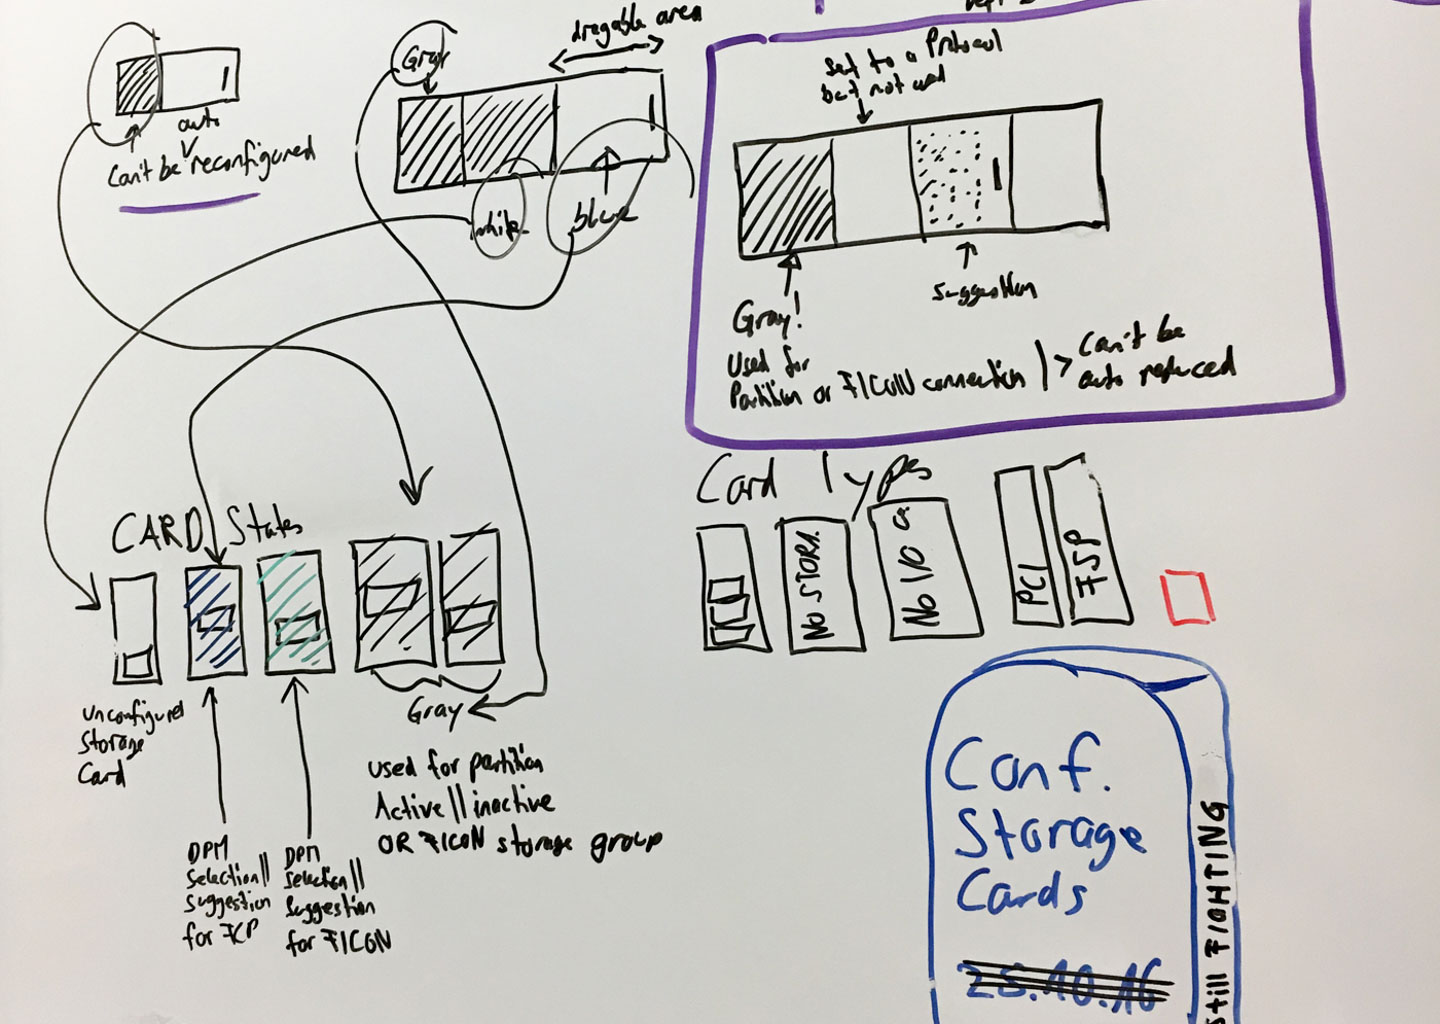 auto
Can't be reconfigured
Gray
dragable area
white
blue
Set to a Protocol
but not used
suggestion
Gray!
Used for
Partition or FICON connection > Can't be
auto reduced
CARD States
unconfigured
Storage
Card
DPM
Selection||
suggestion
for FCP
DPM
selection||
suggestion
for FICON
Gray
used for partition
Active || inactive
OR FICON storage group
Card Types
No STORA.
No I/O
PCI
FSP
Conf.
Storage
Cards
25.10.16
Still FIGHTING